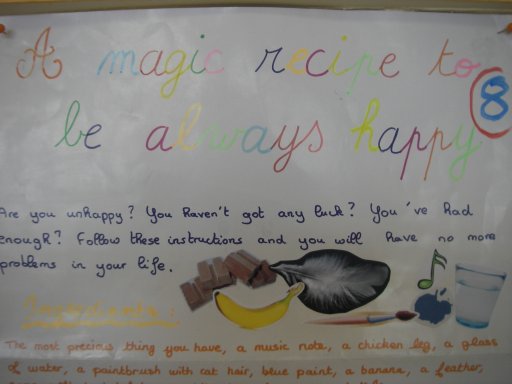 A magic recipe to
be always happy
8
Are you unhappy? You haven't got any luck? You've had
enough? Follow these instructions and you will have no more
problems in your life.
Ingredients:
The most precious thing you have, a music note, a chicken leg, a glass
of water, a paintbrush with cat hair, blue paint, a banana, a feather,